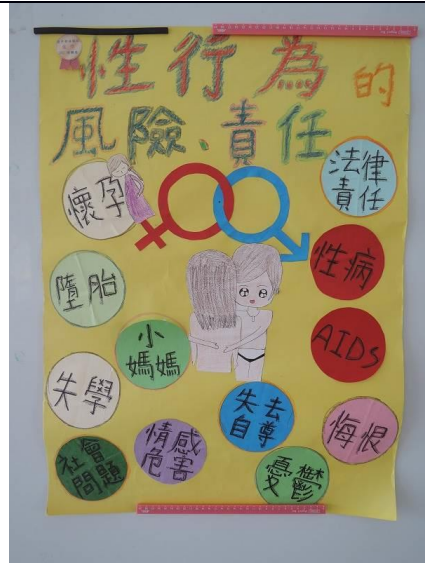 性行為的
風險、責任
懷孕
法律
責任
墮胎
性病
小
媽媽
AIDs
失學
失去
自尊
悔恨
社會
問題
情感
危害
憂鬱